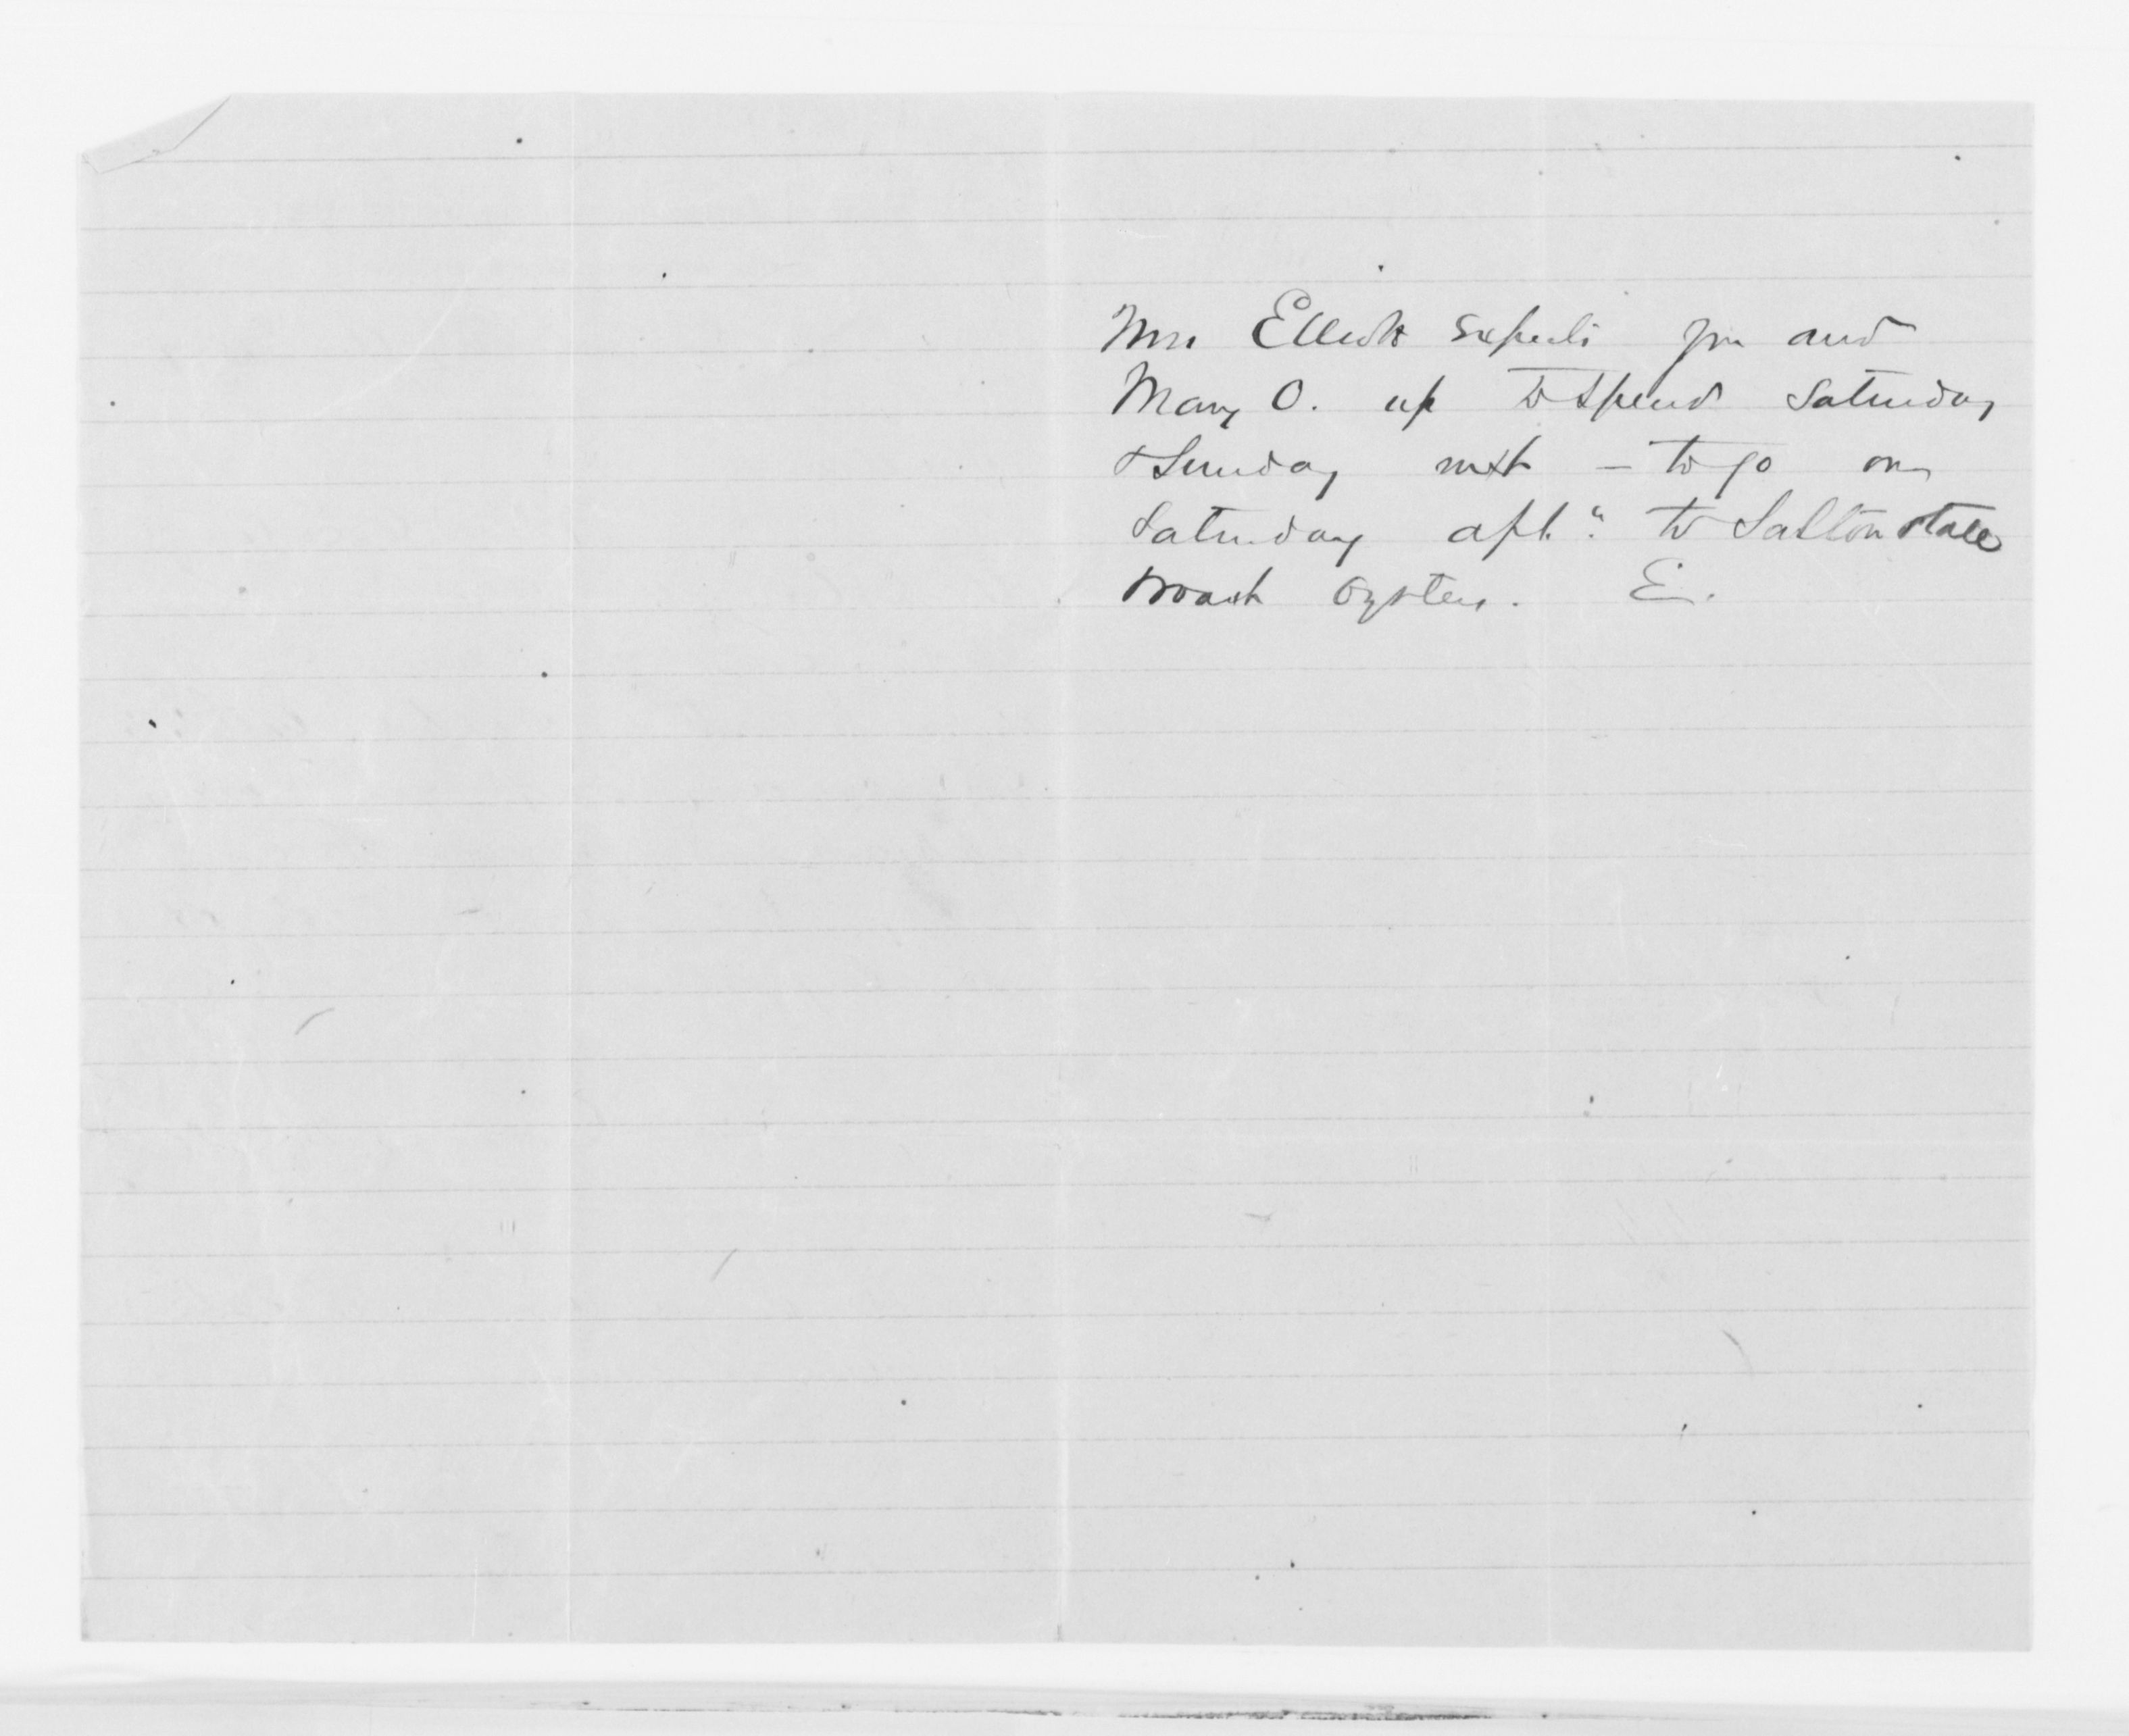 Mrs Elliott expects you and
Mary O. up to spend Saturday
& Sunday next — to go on
Saturday aft." to Saltonstall
to roast Oysters. E.